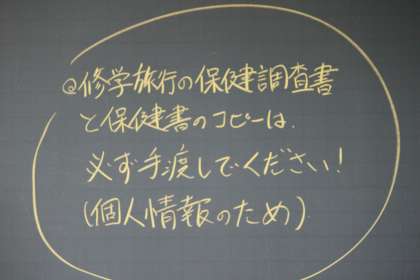 @修学旅行の保健調査書
と保健書のコピーは、
必ず手渡しでください!
(個人情報のため)